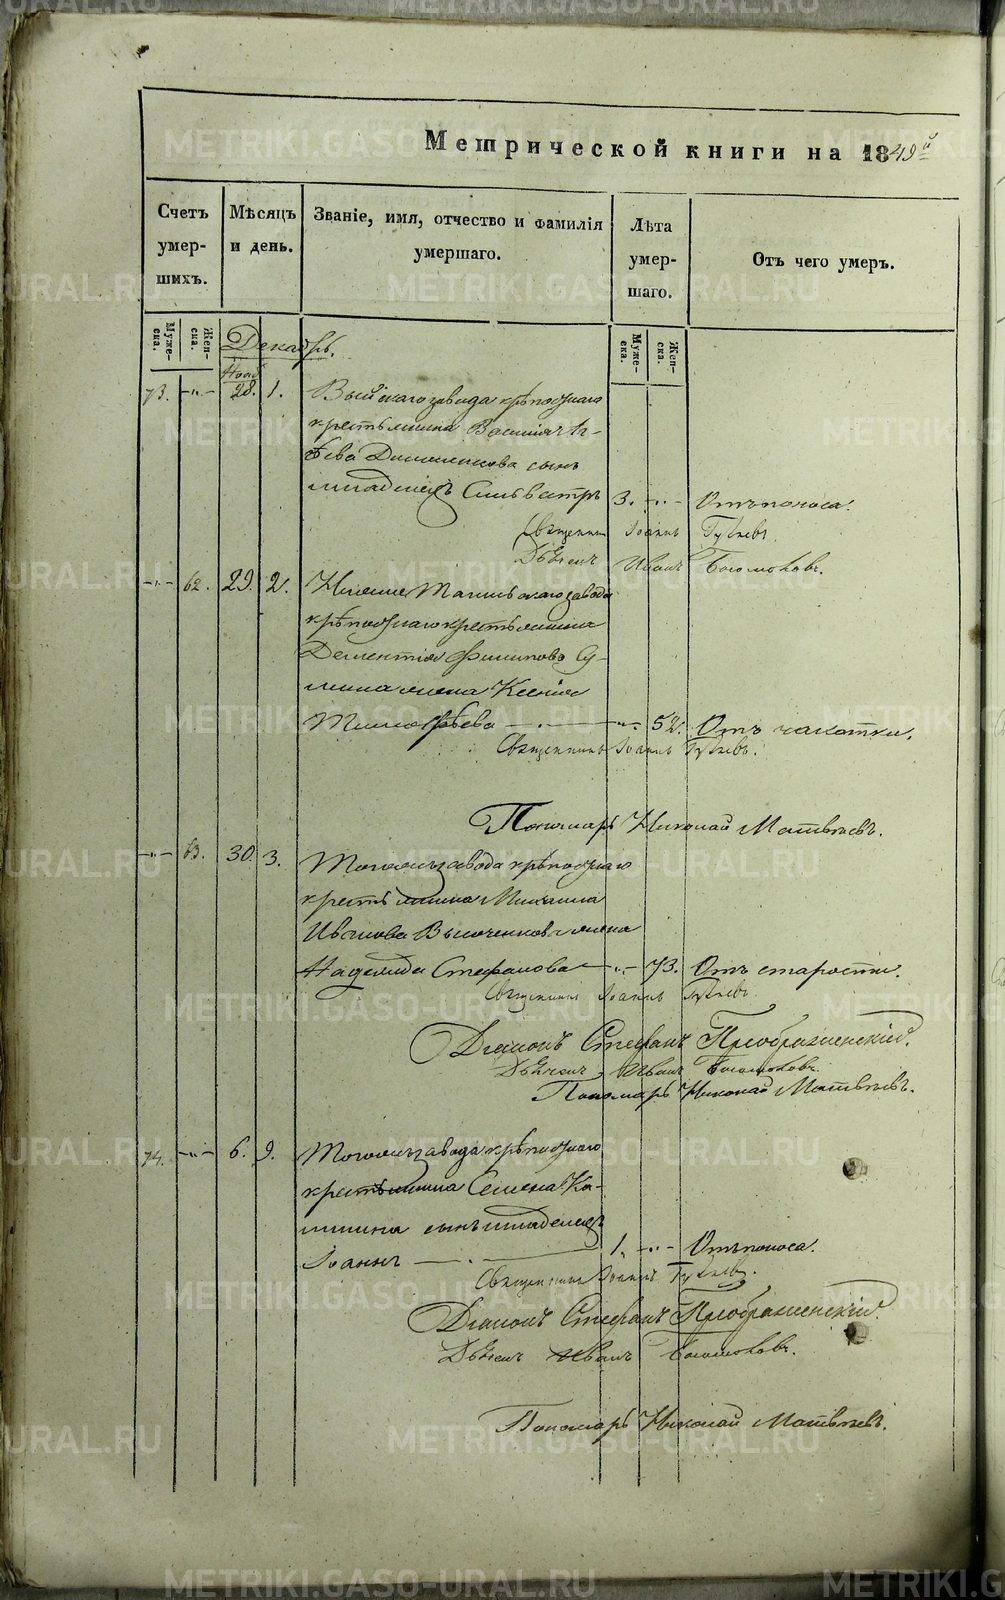 Метрической книги на 1849й
Счетъ умершихъ.
Мѣсяцъ и день.
Званіе, имя, отчество и фамилія умершаго.
Лѣта умершаго.
Отъ чего умеръ.
Мужеска.
Женска.
Мужеска.
Женска.
Декабрь.
Нояб
73. -"- 28. 1. Выйскаго завода крѣпостнаго
крестьянина Василія
сынъ
младенецъ Сильвестръ 3. -"- Отъ поноса.
Священникъ Іоаннъ
Дьячекъ Иванъ Богомоловъ.
-"- 62. 29. 2. Нижне Тагильскаго завода
крѣпостнаго крестьянина
Дементія Филипова Су-
жена Ксенія
Тимофѣева -"- 52. Отъ чахотки.
Священникъ Іоаннъ
Пономарь Николай Матвѣевъ.
-"- 63. 30. 3. Тогожъ завода крѣпостнаго
крестьянина Михаила
Иванова жена
Надежда Стефанова -"- 73. Отъ старости.
Священникъ Іоаннъ
Діаконъ Стефанъ Преображенскій.
Дьячекъ Иванъ Богомоловъ.
Пономарь Николай Матвѣевъ.
74. -"- 6. 9. Тогожъ завода крѣпостнаго
крестьянина Семена Ка-
сынъ младенецъ
Іоаннъ 1. -"- Отъ поноса.
Священникъ Іоаннъ
Діаконъ Стефанъ Преображенскій.
Дьячекъ Иванъ Богомоловъ.
Пономарь Николай Матвѣевъ.
METRIKI.GASO-URAL.RU